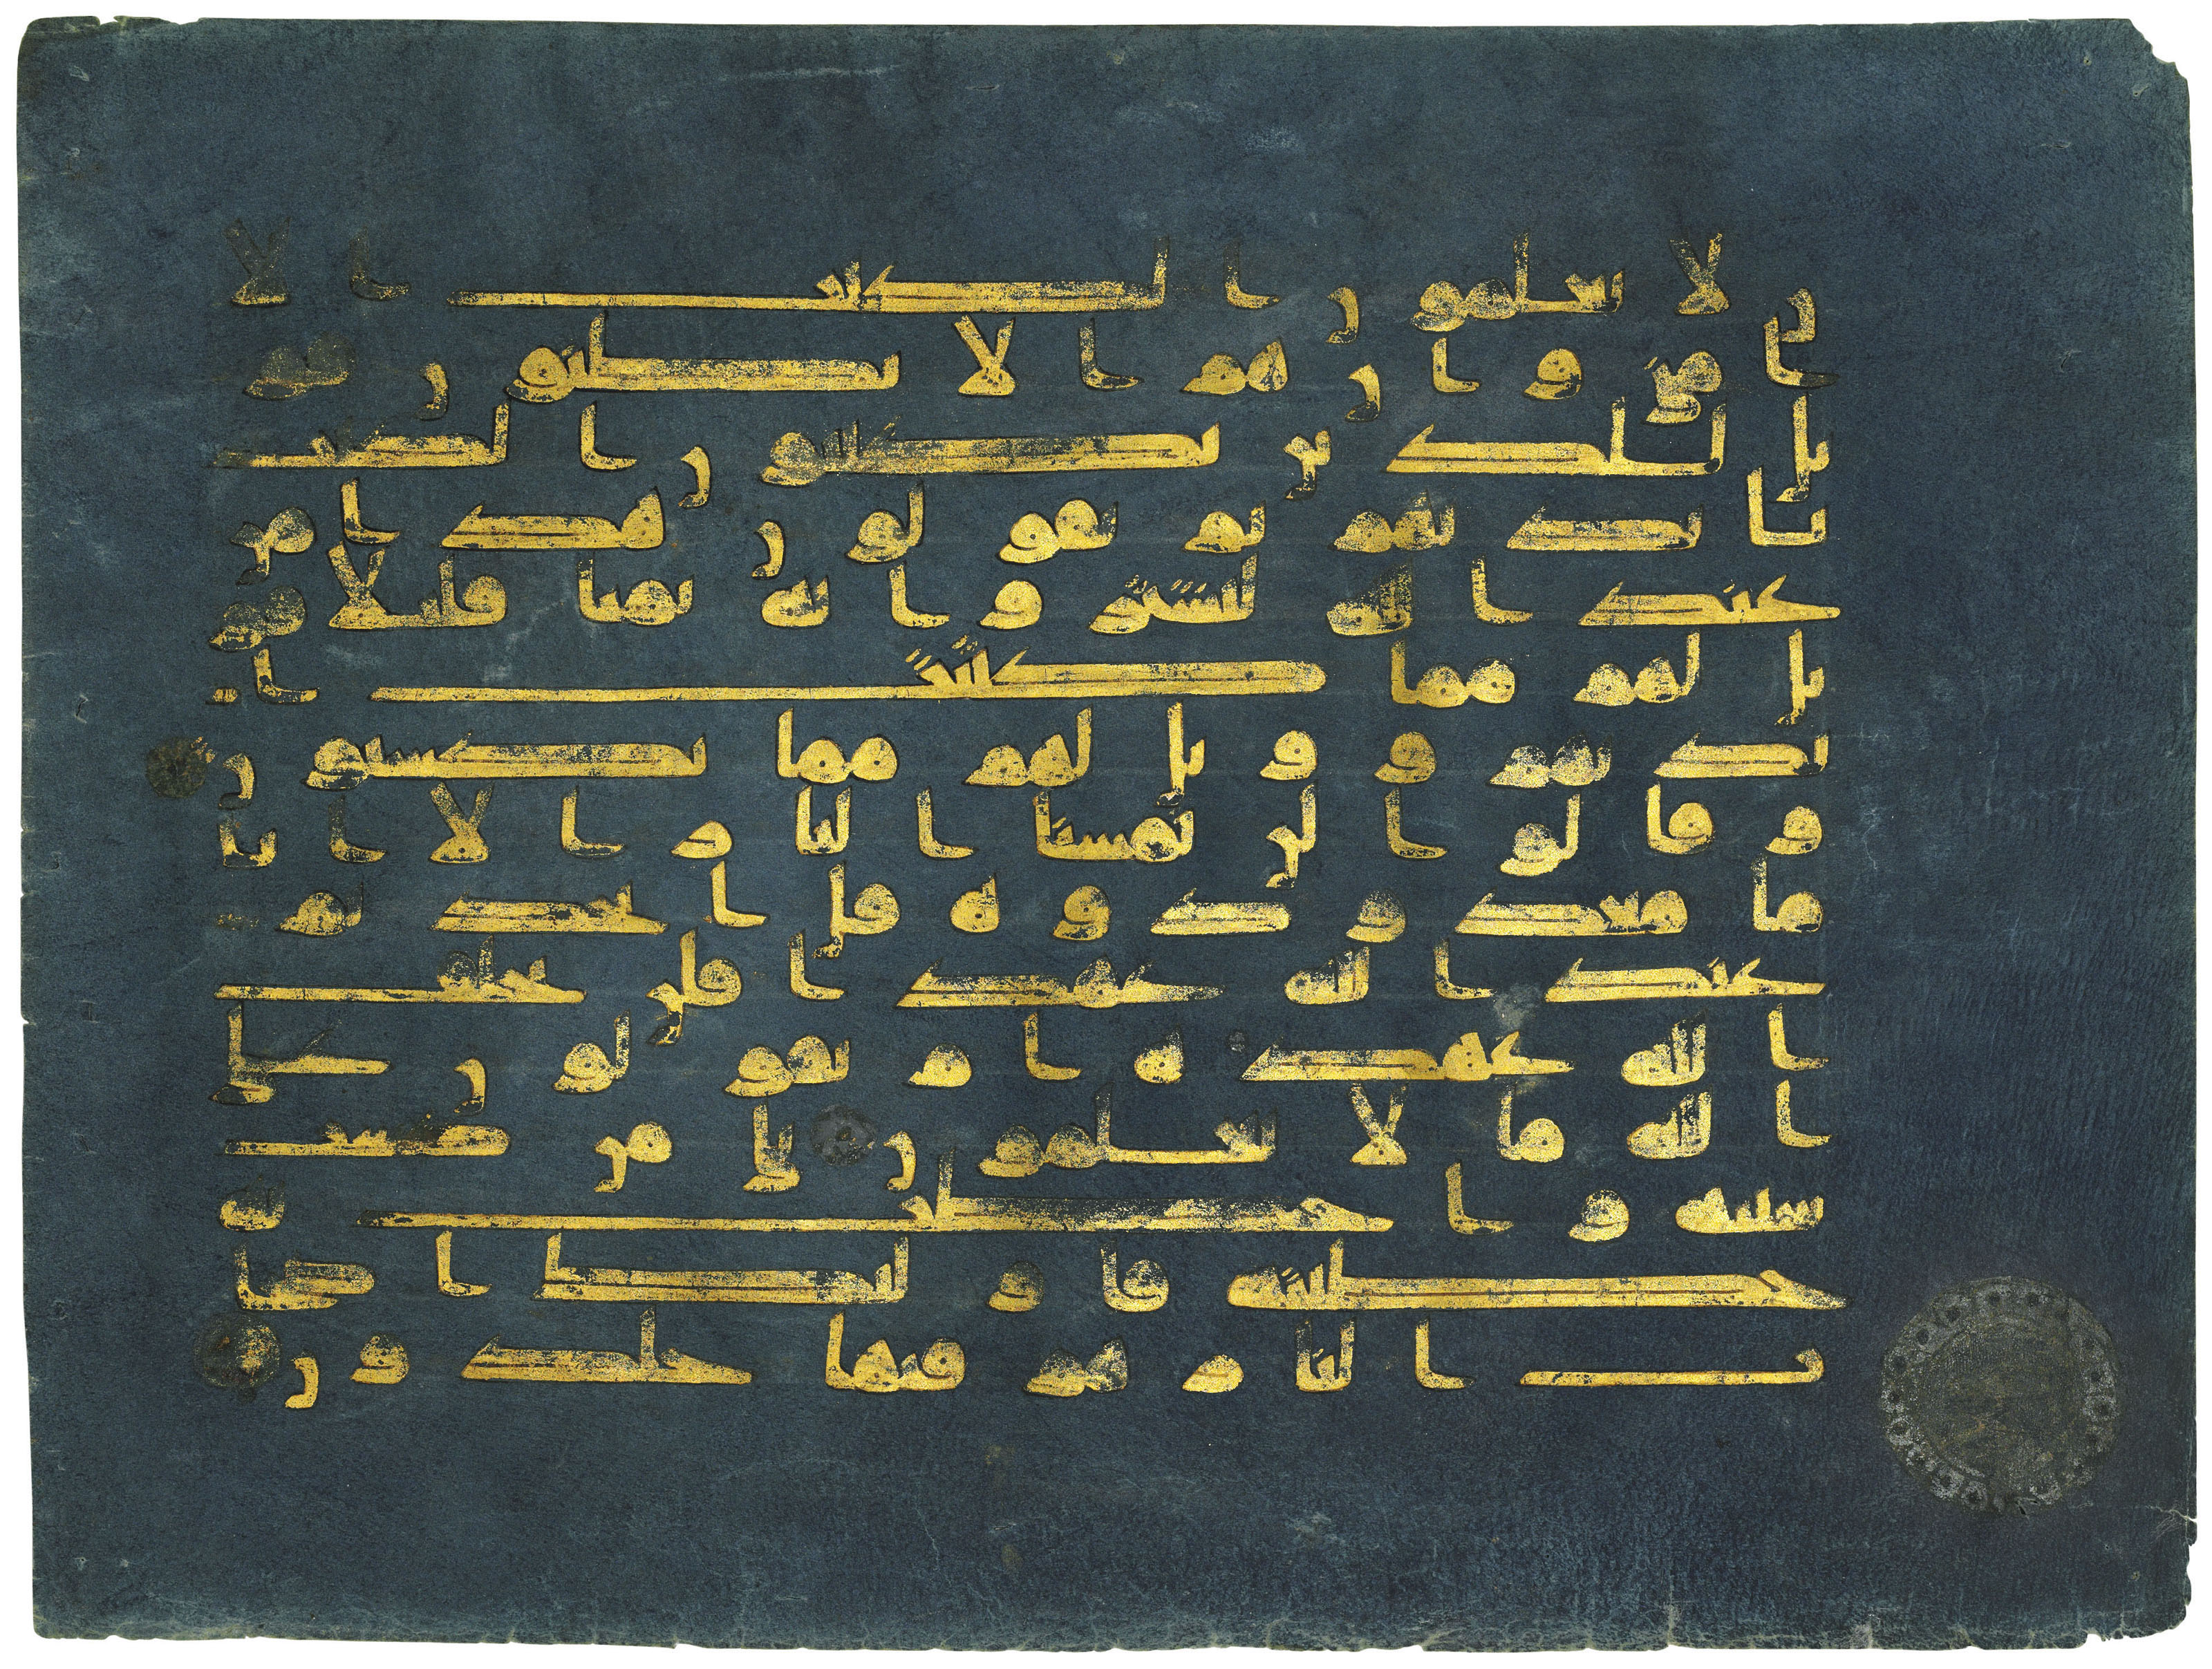 ن لا يعلمون الكتب الا
امنى وان هم الا يظنون فو
يل للذين يكتبون الكتب
بايديهم ثم يقولون هذا من
عند الله ليشتروا به ثمنا قليلا فو
يل لهم مما كتبت ا
يديهم وويل لهم مما يكسبون
وقالوا لن تمسنا النار الا ايا
ما معدودة قل اتخذتم
عند الله عهدا فلن يخلف
الله عهده ام تقولون على
الله ما لا تعلمون بلى من كسب
سيئة واحطت به
خطيئته فاولئك اصحا
ب النار هم فيها خلدون